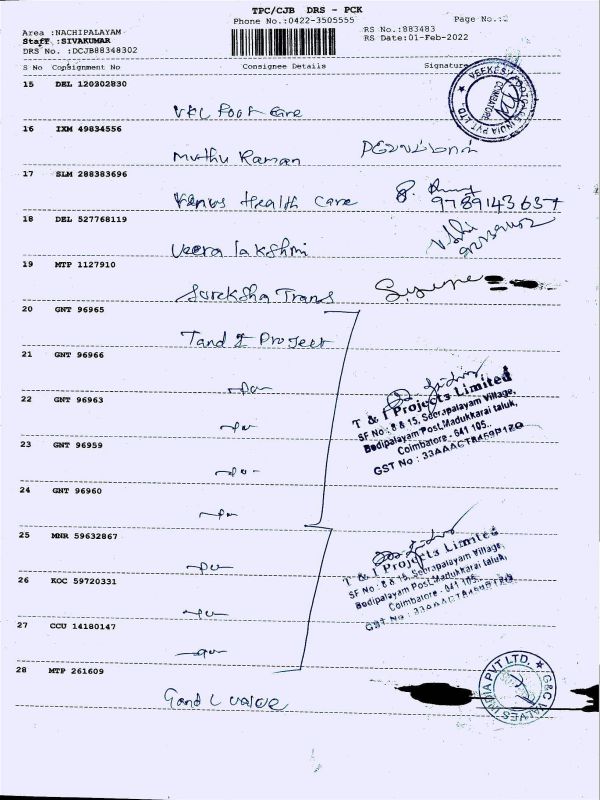 TPC/CJB DRS - PCK
Phone No.:0422-3505555
Page No.:2
Area :NACHIPALAYAM
Staff :SIVAKUMAR
DRS No.:DCJB88348302
RS No.:883483
RS Date:01-Feb-2022
S No Consignment No Consignee Details Signature
15 DEL 120302830
VKC Foot Care
VEEKESY FOOTCARE INDIA PVT LTD.
COIMBATORE
16 IXM 49834556
Muthu Raman
17 SLM 288383696
Venus Health Care
9789143637
18 DEL 527768119
Veera lakshmi
19 MTP 1127910
Sureksha Trans
20 GNT 96965
T and I Project
21 GNT 96966
22 GNT 96963
T & I Projects Limited
SF No : 8 & 15, Seerapalayam Village,
Bodipalayam Post, Madukkarai taluk,
Coimbatore - 641 105.
23 GNT 96959
24 GNT 96960
25 MNR 59632867
T & I Projects Limited
SF No : 8 & 15, Seerapalayam Village,
Bodipalayam Post, Madukkarai taluk,
Coimbatore - 641 105.
26 KOC 59720331
27 CCU 14180147
28 MTP 261609
G and L valve
G&C VALVES INDIA PVT LTD.